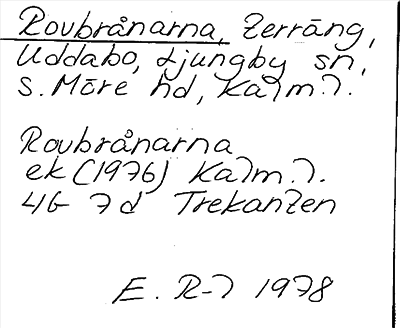 Rovbrånarna, Terräng,
Uddabo, Ljungby sn,
S. Möre hd, Kalm. l.
Rovbrånarna
ek (1976) Kalm. l.
4G 7d Trekanten
E. R-l 1978